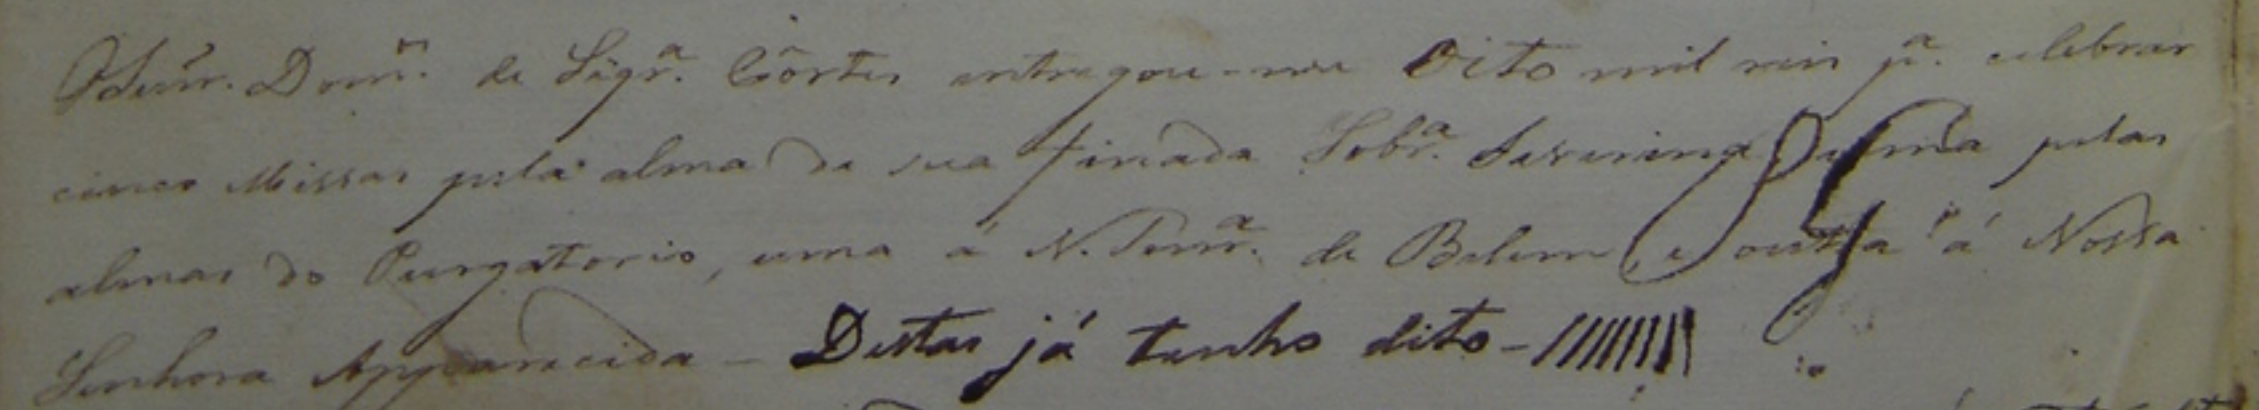 O Senr. Domos. de Siqra. Côrtes entregou-me Oito mil reis pa. celebrar
cinco Missas pela alma de sua finada Sobra. Severina, uma pelas
almas do Purgatorio, uma á N. Senra. de Belem, e outra á Nossa
Senhora Apparecida – Destas já tenho dito – ////////